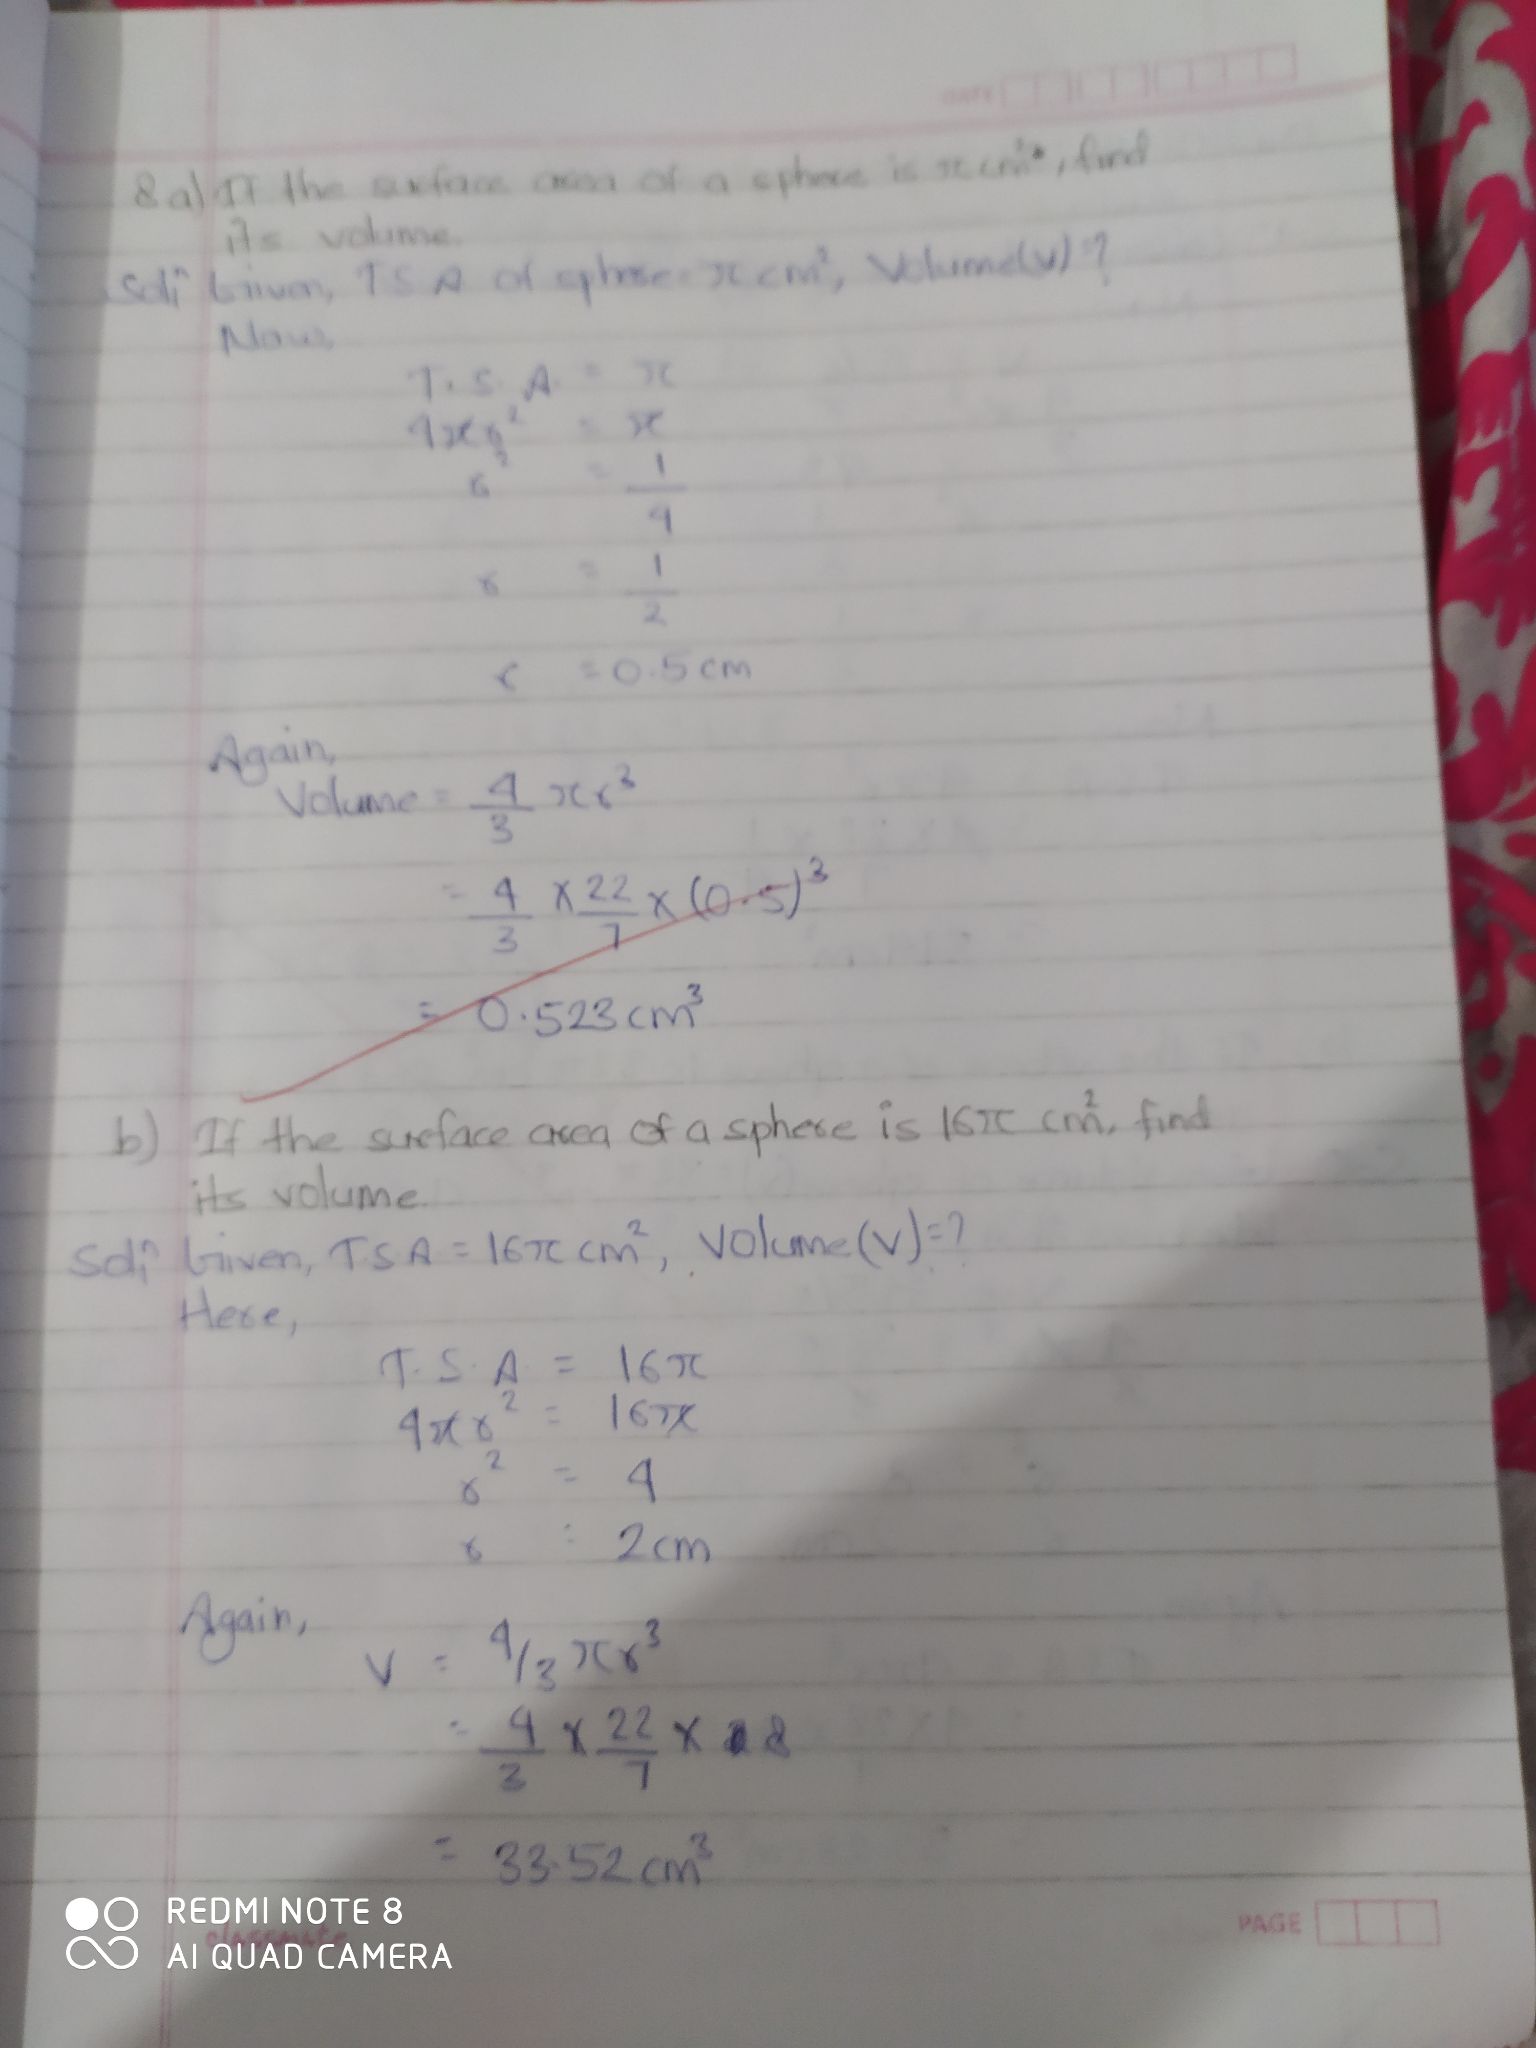 DATE
8 a) If the surface area of a sphere is π cm², find
its volume.
Solⁿ: Given, T.S.A of sphere = π cm², Volume(v) = ?
Now,
T.S.A. = π
4πr² = π
r² = 1/4
r = 1/2
r = 0.5 cm
Again,
Volume = 4/3 πr³
= 4/3 × 22/7 × (0.5)³
= 0.523 cm³
b) If the surface area of a sphere is 16π cm², find
its volume.
Solⁿ: Given, T.S.A = 16π cm², Volume(v) = ?
Here,
T.S.A = 16π
4πr² = 16π
r² = 4
r = 2 cm
Again,
V = 4/3 πr³
= 4/3 × 22/7 × 8
= 33.52 cm³
classmate
PAGE
REDMI NOTE 8
AI QUAD CAMERA